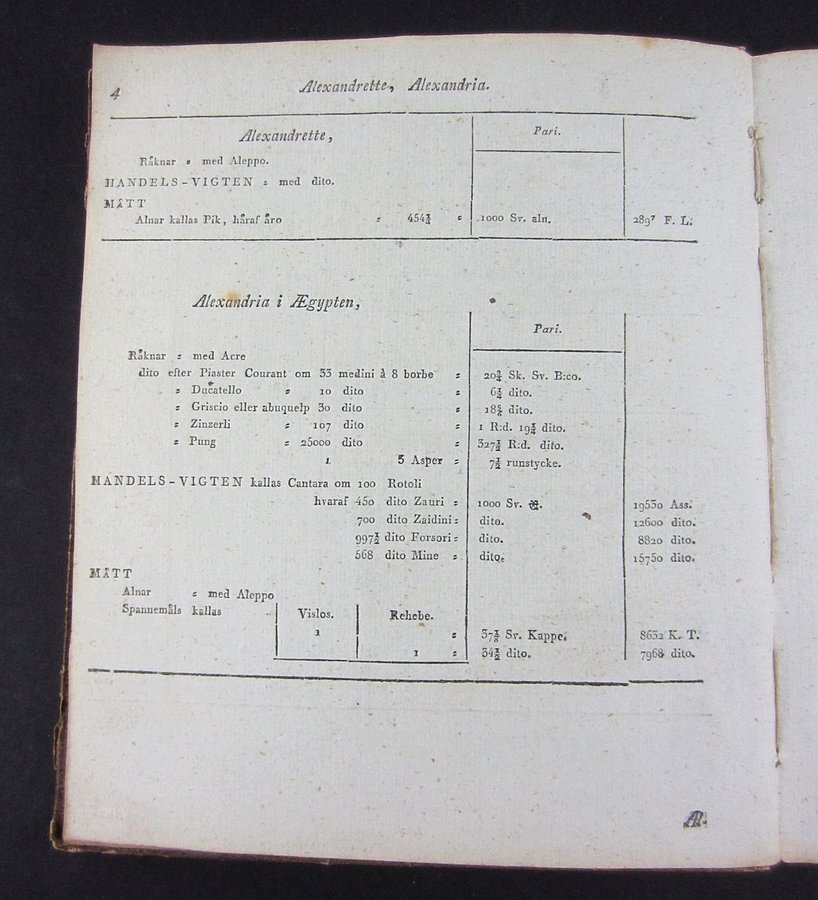 4
Alexandrette, Alexandria.
Alexandrette,
Pari.
Råknar = med Aleppo.
HANDELS-VIGTEN = med dito.
MÅTT
Alnar kallas Pik, håraf åro = 454½ = 1000 Sv. aln. 289⁷ F. L.
Alexandria i Ægypten,
Pari.
Råknar = med Acre
dito efter Piaster Courant om 33 medini å 8 borbe = 20¾ Sk. Sv. B:co.
= Ducatello = 10 dito = 6¼ dito.
= Griscio eller abuquelp 30 dito = 18⅚ dito.
= Zinzerli = 107 dito = 1 R:d. 19¼ dito.
= Pung = 25000 dito = 327½ R:d. dito.
1 5 Asper = 7½ runstycke.
HANDELS-VIGTEN kallas Cantara om 100 Rotoli
hvaraf 450 dito Zauri = 1000 Sv. ℔. 19530 Ass.
700 dito Zaidini = dito. 12600 dito.
997½ dito Forsori = dito. 8820 dito.
568 dito Mine = dito. 15750 dito.
MÅTT
Alnar = med Aleppo
Spannemåls kallas Vislos. Rehebe.
1 = 37⅞ Sv. Kappe. 8632 K. T.
1 = 34½ dito. 7968 dito.
Al-